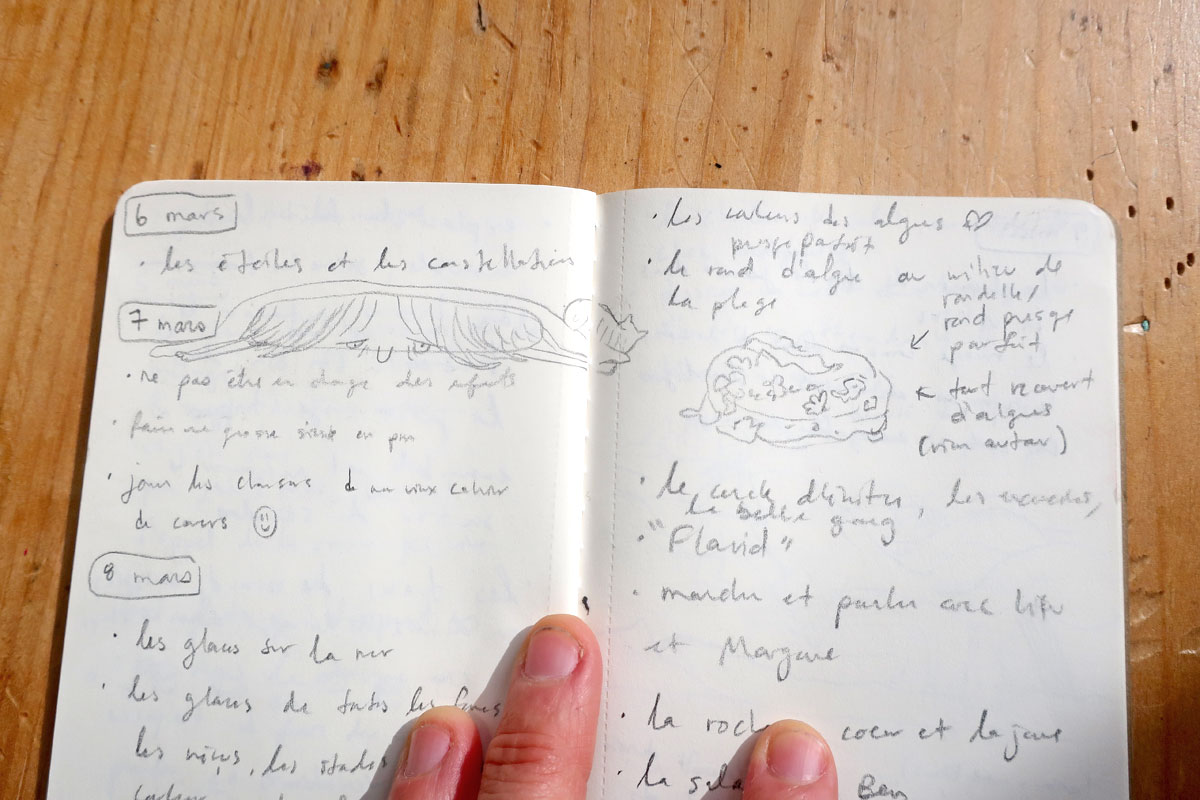 6 mars
· les étoiles et les constellations
7 mars
· ne pas être en charge des enfants
· faire une grosse sieste en pm
· jouer les chansons de mon vieux cahier
de cours
8 mars
· les glaces sur la mer
· les glaces de toutes les formes
les , les stades
· les couleurs des algues
presque parfait
· le rond d'algue au milieu de
la plage
rondelle/
rond presque
parfait
tout recouvert
d'algues
(rien autour)
· le cercle d'huîtres, les
la belle gang
· "Flavid"
· marcher et parler avec
et Margane
· la roche coeur et la jaune
· la Ben